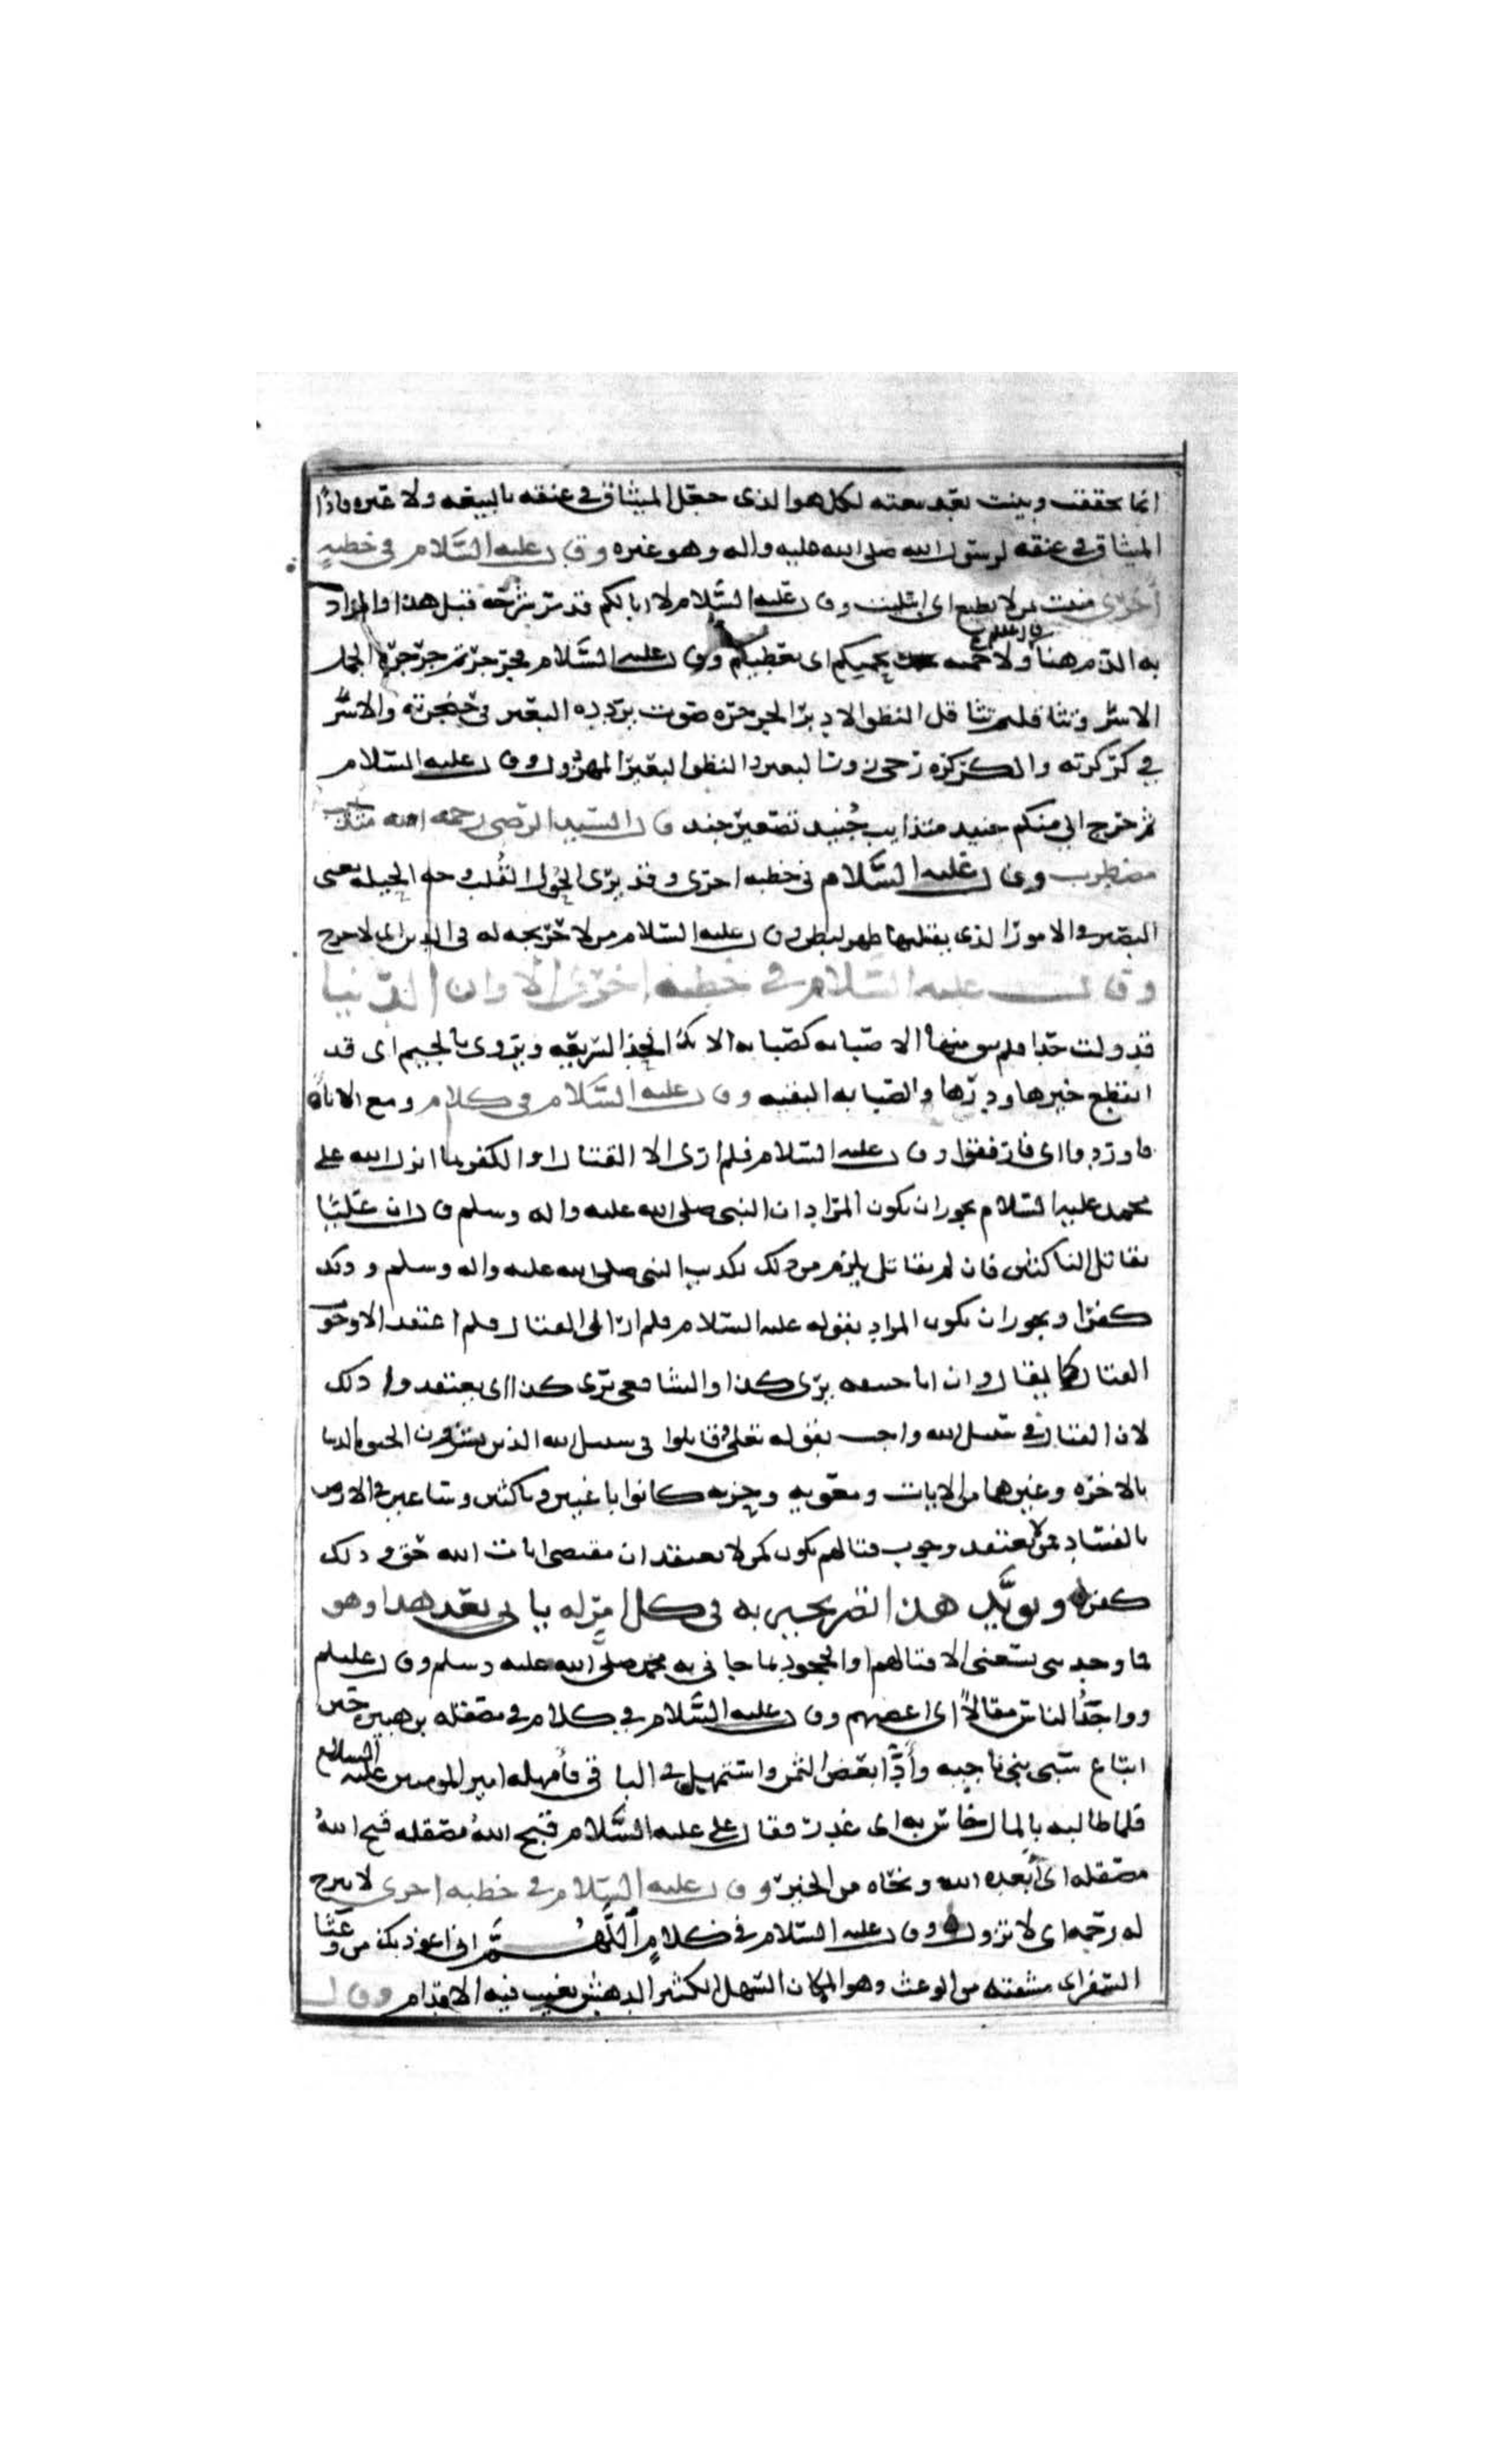 انما تحققت وبينت بعد بيعته لكل هو الذى جعل الميثاق في عنقه بالبيعه ولا غيره واذا
الميثاق في عنقه لرسول الله صلى الله عليه واله وهو غيره وقال عليه السلام في خطبه
أخرى منيت بمن لا يطيع اى ابتليت وقال عليه السلام لا ابا لكم قد مر شرحه قبل هذا والمراد
به الذم هنا ولا حميه تحميكم اى تغضبكم وقال عليه السلام فجرجرتم جرجرة الجمل
الاسر وتثاقلتم تثاقل النظو الادبر الجرجره صوت يردده البعير في حنجرته والاسر
في كركرته والكركره زحى زور البعير والنظو البعير المهزول وقال عليه السلام
ثم خرج الى منكم جنيد متذايب جُنيد تصغير جند قال السيد الرضى رحمه الله متذايب
مضطرب وقال عليه السلام في خطبه اخرى وقد يرى الحُول القُلب وجه الحيله يعنى
البصير في الامور الذى يقلبها ظهر لبطن وقال عليه السلام من لا حريجه له في الدين اى لا حرج
وقال عليه السلام في خطبه اخرى الا وان الدنيا
قد ولت حذا فلم يبق منها الا صبابه كصبابه الاناء الحذا السريعه ويروى بالجيم اى قد
انقطع خيرها ودرها والصبابه البقيه وقال عليه السلام في كلام ومع الاناة
فاوردوا اى فارفقوا وقال عليه السلام فلم ارى الا القتال او الكفر بما انزل الله على
محمد عليه السلام يجوز ان يكون المراد ان النبي صلى الله عليه واله وسلم قال ان عليا
يقاتل الناكثين فان لم يقاتل يلزم من ذلك تكذيب النبي صلى الله عليه واله وسلم وذلك
كفرا ويجوز ان يكون المراد بقوله عليه السلام فلم ار الى القتال فلم اعتقد الا وجوب
القتال كما يقال وان ابا حنيفه يرى كذا والشافعى يرى كذا اى يعتقد وا ذلك
لان القتال في سبيل الله واجب بقوله تعلى وقاتلوا في سبيل الله الذين يشرون الحيوه الدنيا
بالاخره وغيرهما من الايات ومعويه وحزبه كانوا باغيين وناكثين وساعين في الارض
بالفساد فمن لا يعتقد وجوب قتالهم يكون كمن لا يعتقد ان مقتضى ايات الله حق وذلك
كفر ويويد هذا التصريحير به في كلامٍ له ياتى بعد هذا وهو
فما وجدتنى يسعنى الا قتالهم او الجحود بما جانى به محمد صلى الله عليه وسلم وقال عليلم
وواجد الناس مقالاً اى اغضبهم وقال عليه السلام في كلام في مصقله بن هبيره حين
ابتاع سبى بنى ناجيه وأدّا بعض الثمن واستمهل في الباقى فأمهله امير المومنين عليه السلام
فلما طالبه بالمال خاس به اى غدر فقال على عليه السلام قبح اللهُ مصقله قبح اللهُ
مصقله اى أبعده الله ونحّاه من الخير وقال عليه السلام في خطبه اخرى لا تبرح
له رحمه اى لا تزول وقال عليه السلام في كلامٍ اللهُم انى اعوذ بك من وعثا
السفر اى مشقته من الوعث وهو المكان السهل الكثير الدهس يغيب فيه الاقدام وقال